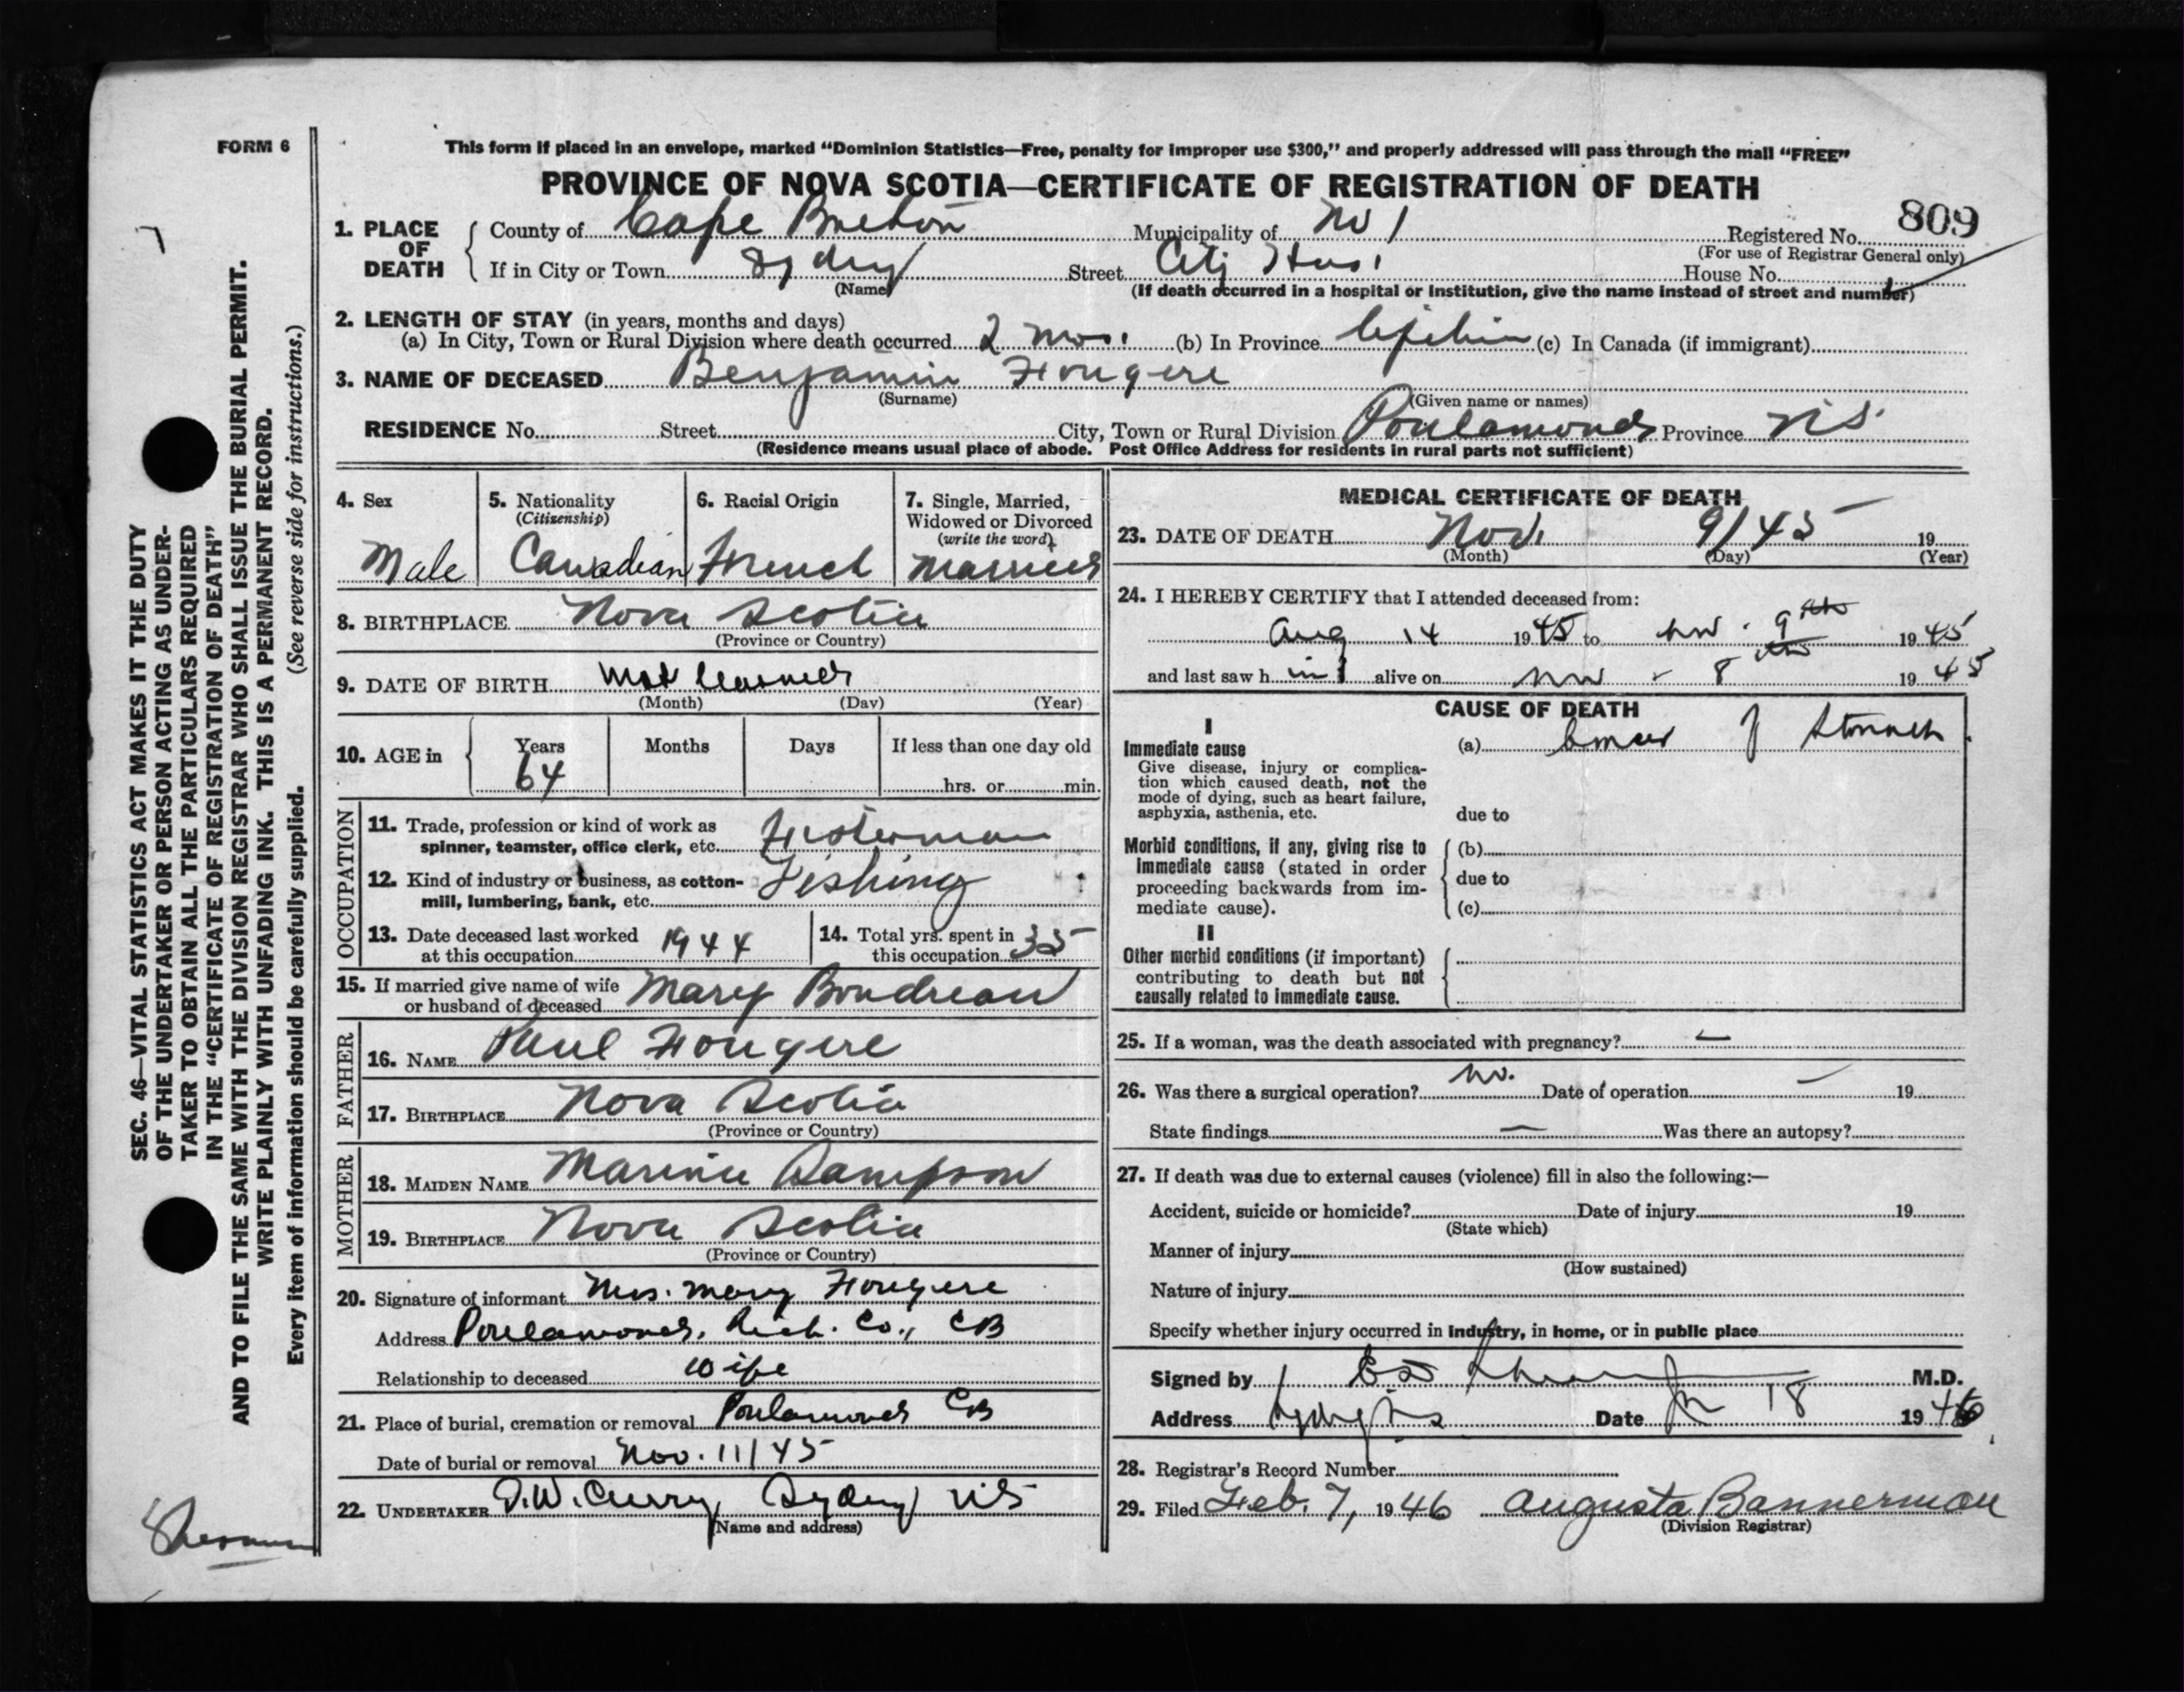 FORM 6
This form if placed in an envelope, marked “Dominion Statistics—Free, penalty for improper use $300,” and properly addressed will pass through the mail “FREE”
PROVINCE OF NOVA SCOTIA—CERTIFICATE OF REGISTRATION OF DEATH
809
1. PLACE OF DEATH County of Cape Breton Municipality of No 1 Registered No.
(For use of Registrar General only)
If in City or Town Sydney Street City Hos. House No.
(Name) (If death occurred in a hospital or institution, give the name instead of street and number)
2. LENGTH OF STAY (in years, months and days)
(a) In City, Town or Rural Division where death occurred 2 mos. (b) In Province Lifetime (c) In Canada (if immigrant)
3. NAME OF DECEASED Benjamin Fougere
(Surname) (Given name or names)
RESIDENCE No. Street City, Town or Rural Division Poulamond Province N.S.
(Residence means usual place of abode. Post Office Address for residents in rural parts not sufficient)
4. Sex Male
5. Nationality (Citizenship) Canadian
6. Racial Origin French
7. Single, Married, Widowed or Divorced (write the word) Married
8. BIRTHPLACE Nova Scotia
(Province or Country)
9. DATE OF BIRTH Not learned
(Month) (Day) (Year)
10. AGE in Years 64 Months Days If less than one day old
hrs. or min.
OCCUPATION
11. Trade, profession or kind of work as
spinner, teamster, office clerk, etc. Fisherman
12. Kind of industry or business, as cotton-
mill, lumbering, bank, etc. Fishing
13. Date deceased last worked
at this occupation 1944
14. Total yrs. spent in
this occupation 35
15. If married give name of wife
or husband of deceased Mary Boudreau
FATHER
16. NAME Paul Fougere
17. BIRTHPLACE Nova Scotia
(Province or Country)
MOTHER
18. MAIDEN NAME Marinie Sampson
19. BIRTHPLACE Nova Scotia
(Province or Country)
20. Signature of informant Mrs. Mary Fougere
Address Poulamond, Rich. Co., CB
Relationship to deceased wife
21. Place of burial, cremation or removal Poulamond CB
Date of burial or removal Nov. 11/45
22. UNDERTAKER D.W. Curry, Sydney NS
(Name and address)
MEDICAL CERTIFICATE OF DEATH
23. DATE OF DEATH Nov. 9/45 19
(Month) (Day) (Year)
24. I HEREBY CERTIFY that I attended deceased from:
Aug 14 1945 to Nov. 9th 1945
and last saw him alive on Nov - 8th 1945
CAUSE OF DEATH
I
Immediate cause (a) Cancer of Stomach.
Give disease, injury or complica-
tion which caused death, not the
mode of dying, such as heart failure,
asphyxia, asthenia, etc. due to
Morbid conditions, if any, giving rise to (b)
immediate cause (stated in order
proceeding backwards from im- due to
mediate cause). (c)
II
Other morbid conditions (if important)
contributing to death but not
causally related to immediate cause.
25. If a woman, was the death associated with pregnancy? —
26. Was there a surgical operation? No. Date of operation — 19
State findings — Was there an autopsy?
27. If death was due to external causes (violence) fill in also the following:—
Accident, suicide or homicide? Date of injury 19
(State which)
Manner of injury
(How sustained)
Nature of injury
Specify whether injury occurred in industry, in home, or in public place
Signed by M.D.
Address Sydney NS Date Jan 18 1946
28. Registrar's Record Number
29. Filed Feb. 7, 1946 Augusta Bannerman
(Division Registrar)
SEC. 46—VITAL STATISTICS ACT MAKES IT THE DUTY
OF THE UNDERTAKER OR PERSON ACTING AS UNDER-
TAKER TO OBTAIN ALL THE PARTICULARS REQUIRED
IN THE “CERTIFICATE OF REGISTRATION OF DEATH”
AND TO FILE THE SAME WITH THE DIVISION REGISTRAR WHO SHALL ISSUE THE BURIAL PERMIT.
WRITE PLAINLY WITH UNFADING INK. THIS IS A PERMANENT RECORD.
Every item of information should be carefully supplied. (See reverse side for instructions.)